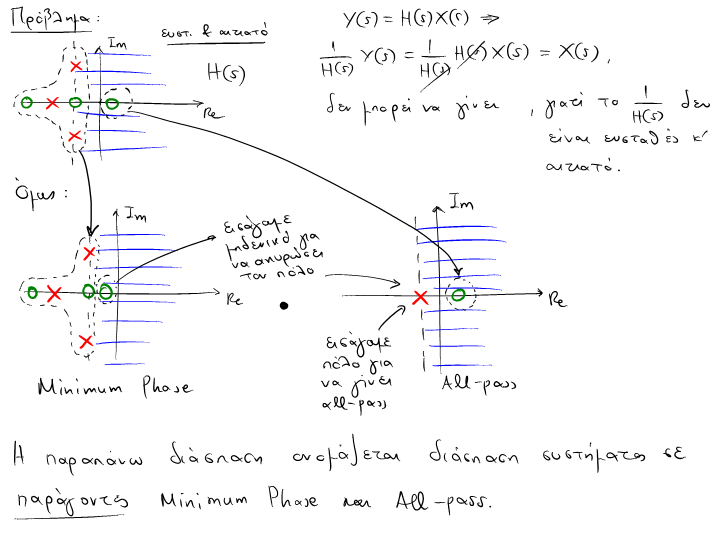 Πρόβλημα:
ευστ. & αιτιατό
H(s)
Im
Re
Y(s) = H(s)X(s) ⇒
1/H(s) Y(s) = 1/H(s) H(s) X(s) = X(s),
δεν μπορεί να γίνει, γιατί το 1/H(s) δεν
είναι ευσταθές κ'
αιτιατό.
Όμως:
Im
Re
εισάγαμε
μηδενικό για
να ακυρώσει
τον πόλο
Minimum Phase
Im
Re
εισάγαμε
πόλο για
να γίνει
all-pass
All-pass
Η παραπάνω διάσπαση ονομάζεται διάσπαση συστήματος σε
παράγοντες Minimum Phase και All-pass.